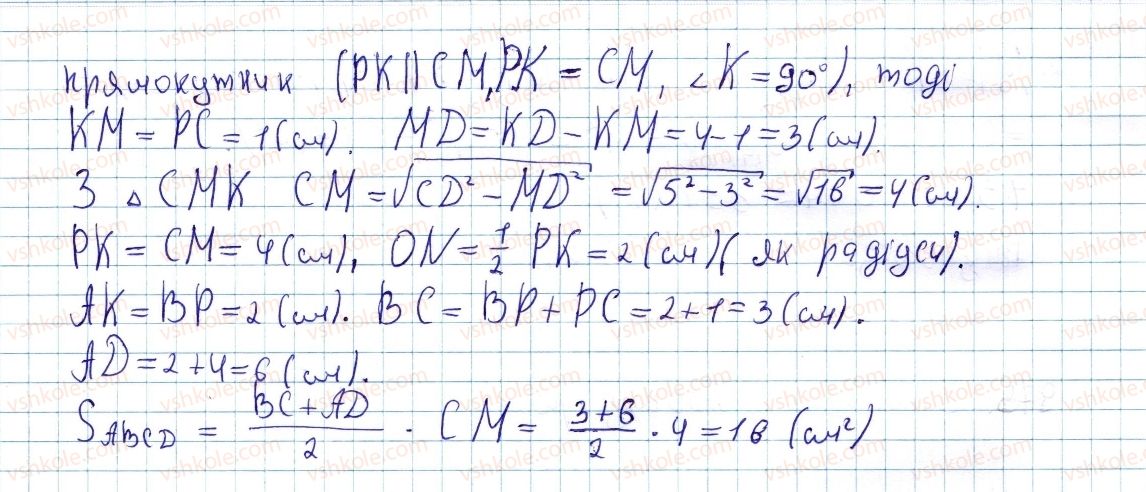 прямокутник (PK||CM, PK = CM, ∠K = 90°), тоді
KM = PC = 1 (см). MD = KD - KM = 4 - 1 = 3 (см).
З △ CMK CM = √(CD² - MD²) = √(5² - 3²) = √16 = 4 (см).
PK = CM = 4 (см), ON = 1/2 PK = 2 (см) (як радіуси).
AK = BP = 2 (см). BC = BP + PC = 2 + 1 = 3 (см).
AD = 2 + 4 = 6 (см).
S ABCD = (BC + AD)/2 · CM = (3 + 6)/2 · 4 = 18 (см²)